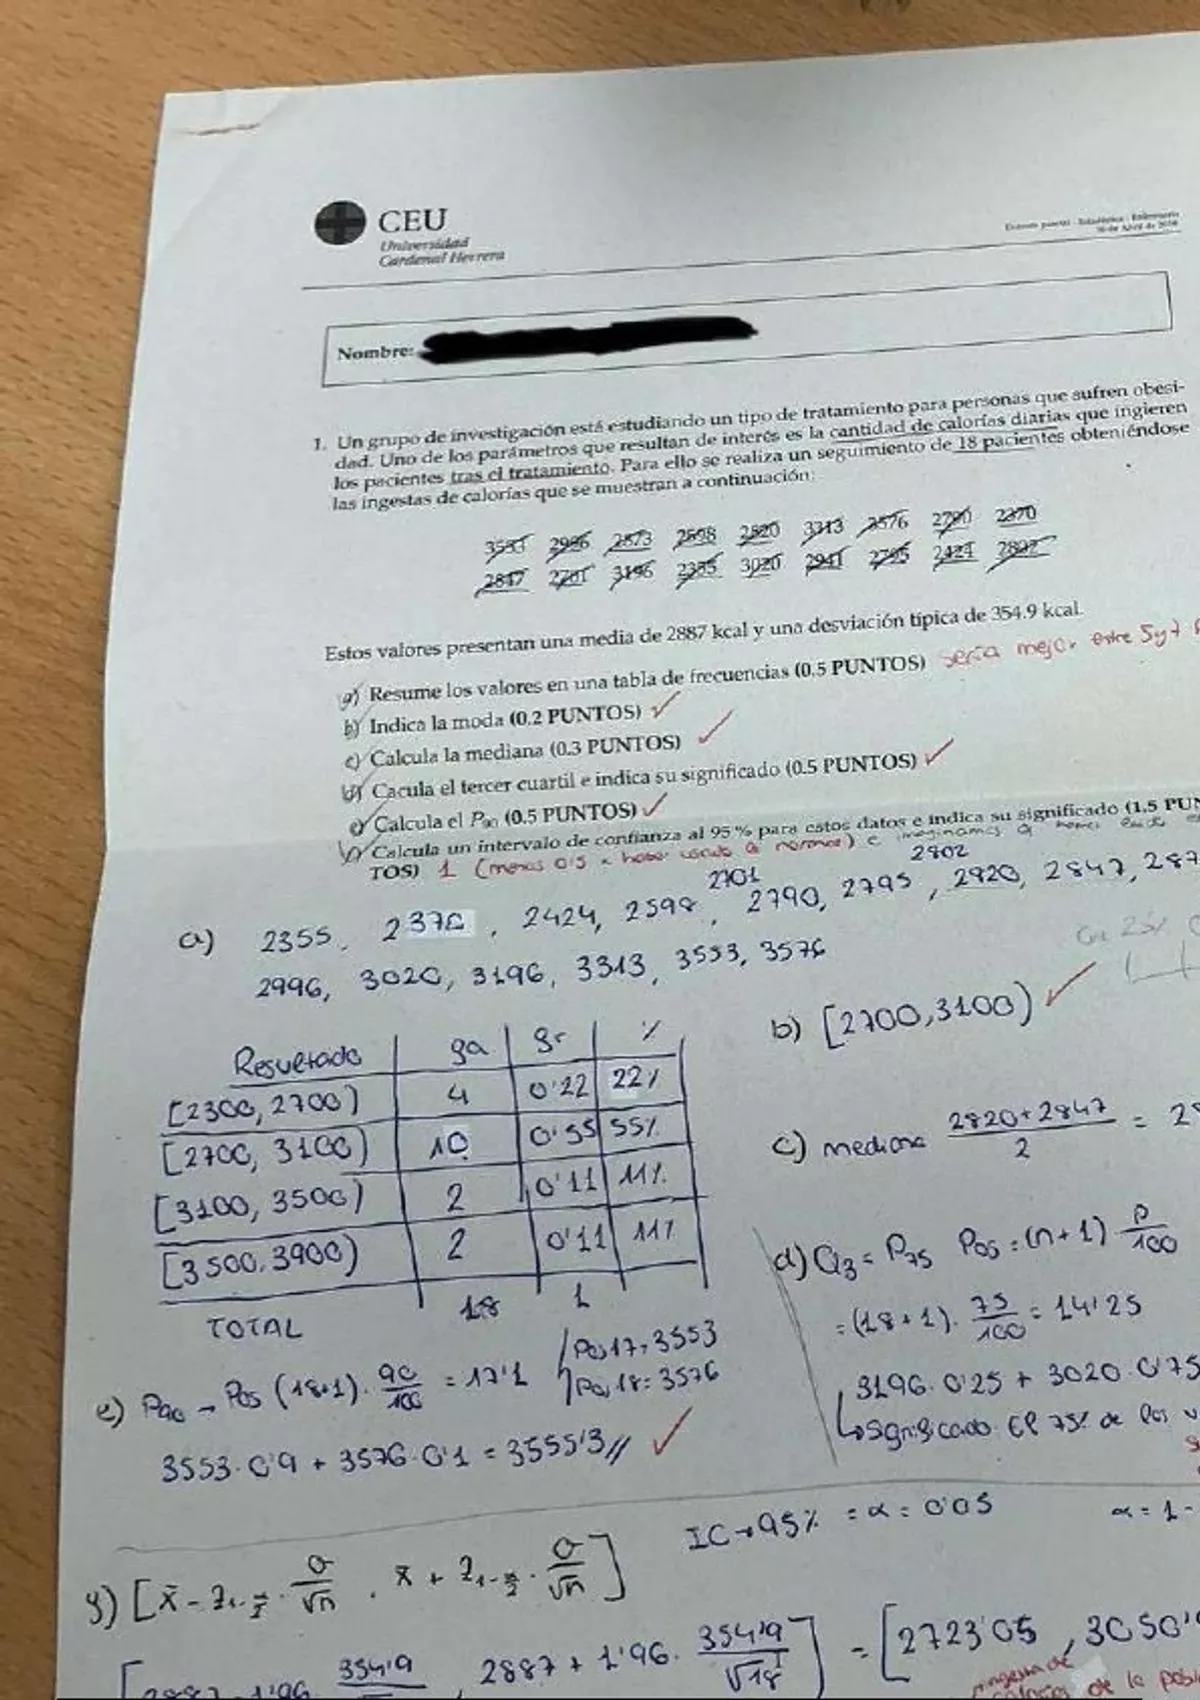 CEU
Universidad
Cardenal Herrera
Examen parcial - Estadística - Enfermería
de Abril de
Nombre:
1. Un grupo de investigación está estudiando un tipo de tratamiento para personas que sufren obesi-
dad. Uno de los parámetros que resultan de interés es la cantidad de calorías diarias que ingieren
los pacientes tras el tratamiento. Para ello se realiza un seguimiento de 18 pacientes obteniéndose
las ingestas de calorías que se muestran a continuación:
3553 2996 2873 2598 2820 3313 3576 2790 2370
2847 2701 3196 2355 3020 2941 2795 2424 2802
Estos valores presentan una media de 2887 kcal y una desviación típica de 354.9 kcal.
a) Resume los valores en una tabla de frecuencias (0.5 PUNTOS) sería mejor entre 5 y 7
b) Indica la moda (0.2 PUNTOS) ✓
c) Calcula la mediana (0.3 PUNTOS) ✓
d) Cacula el tercer cuartil e indica su significado (0.5 PUNTOS) ✓
e) Calcula el P90 (0.5 PUNTOS) ✓
f) Calcula un intervalo de confianza al 95 % para estos datos e indica su significado (1.5 PUN
TOS) 1 (menos 0'5 x haber usado la normal)
2802
a) 2355, 2370, 2424, 2598, 2701 2790, 2795, 2820, 2847, 287
2996, 3020, 3196, 3313, 3553, 3576
Resultado fa fr %
[2300, 2700) 4 0'22 22%
[2700, 3100) 10 0'55 55%
[3100, 3500) 2 0'11 11%
[3500, 3900) 2 0'11 11%
TOTAL 18 1
b) [2700, 3100) ✓
c) mediana (2820 + 2847)/2 = 28
d) Q3 = P75 Pos = (n+1) · P/100
= (18+1) · 75/100 = 14'25
3196 · 0'25 + 3020 · 0'75
↳ significado: el 75% de los v
e) P90 → Pos (18+1) · 90/100 = 17'1 Pos 17: 3553
Pos 18: 3576
3553 · 0'9 + 3576 · 0'1 = 3555'3 // ✓
IC → 95% = α = 0'05 α = 1 -
f) [x̄ - z1-α/2 · σ/√n , x̄ + z1-α/2 · σ/√n]
[2887 - 1'96 · 354'9/√ , 2887 + 1'96 · 354'9/√18] = [2723'05 , 3050'
ingesta de
calorías de la pobl